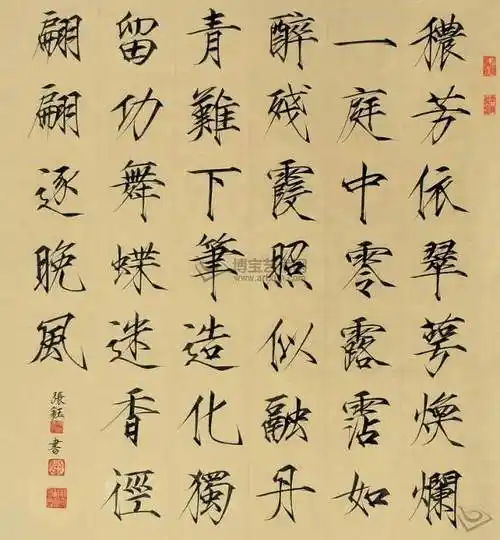 穠芳依翠萼煥爛
一庭中零露霑如
醉殘霞照似融丹
青難下筆造化獨
留功舞蝶迷香徑
翩翩逐晚風
張鈺書
博宝艺术网